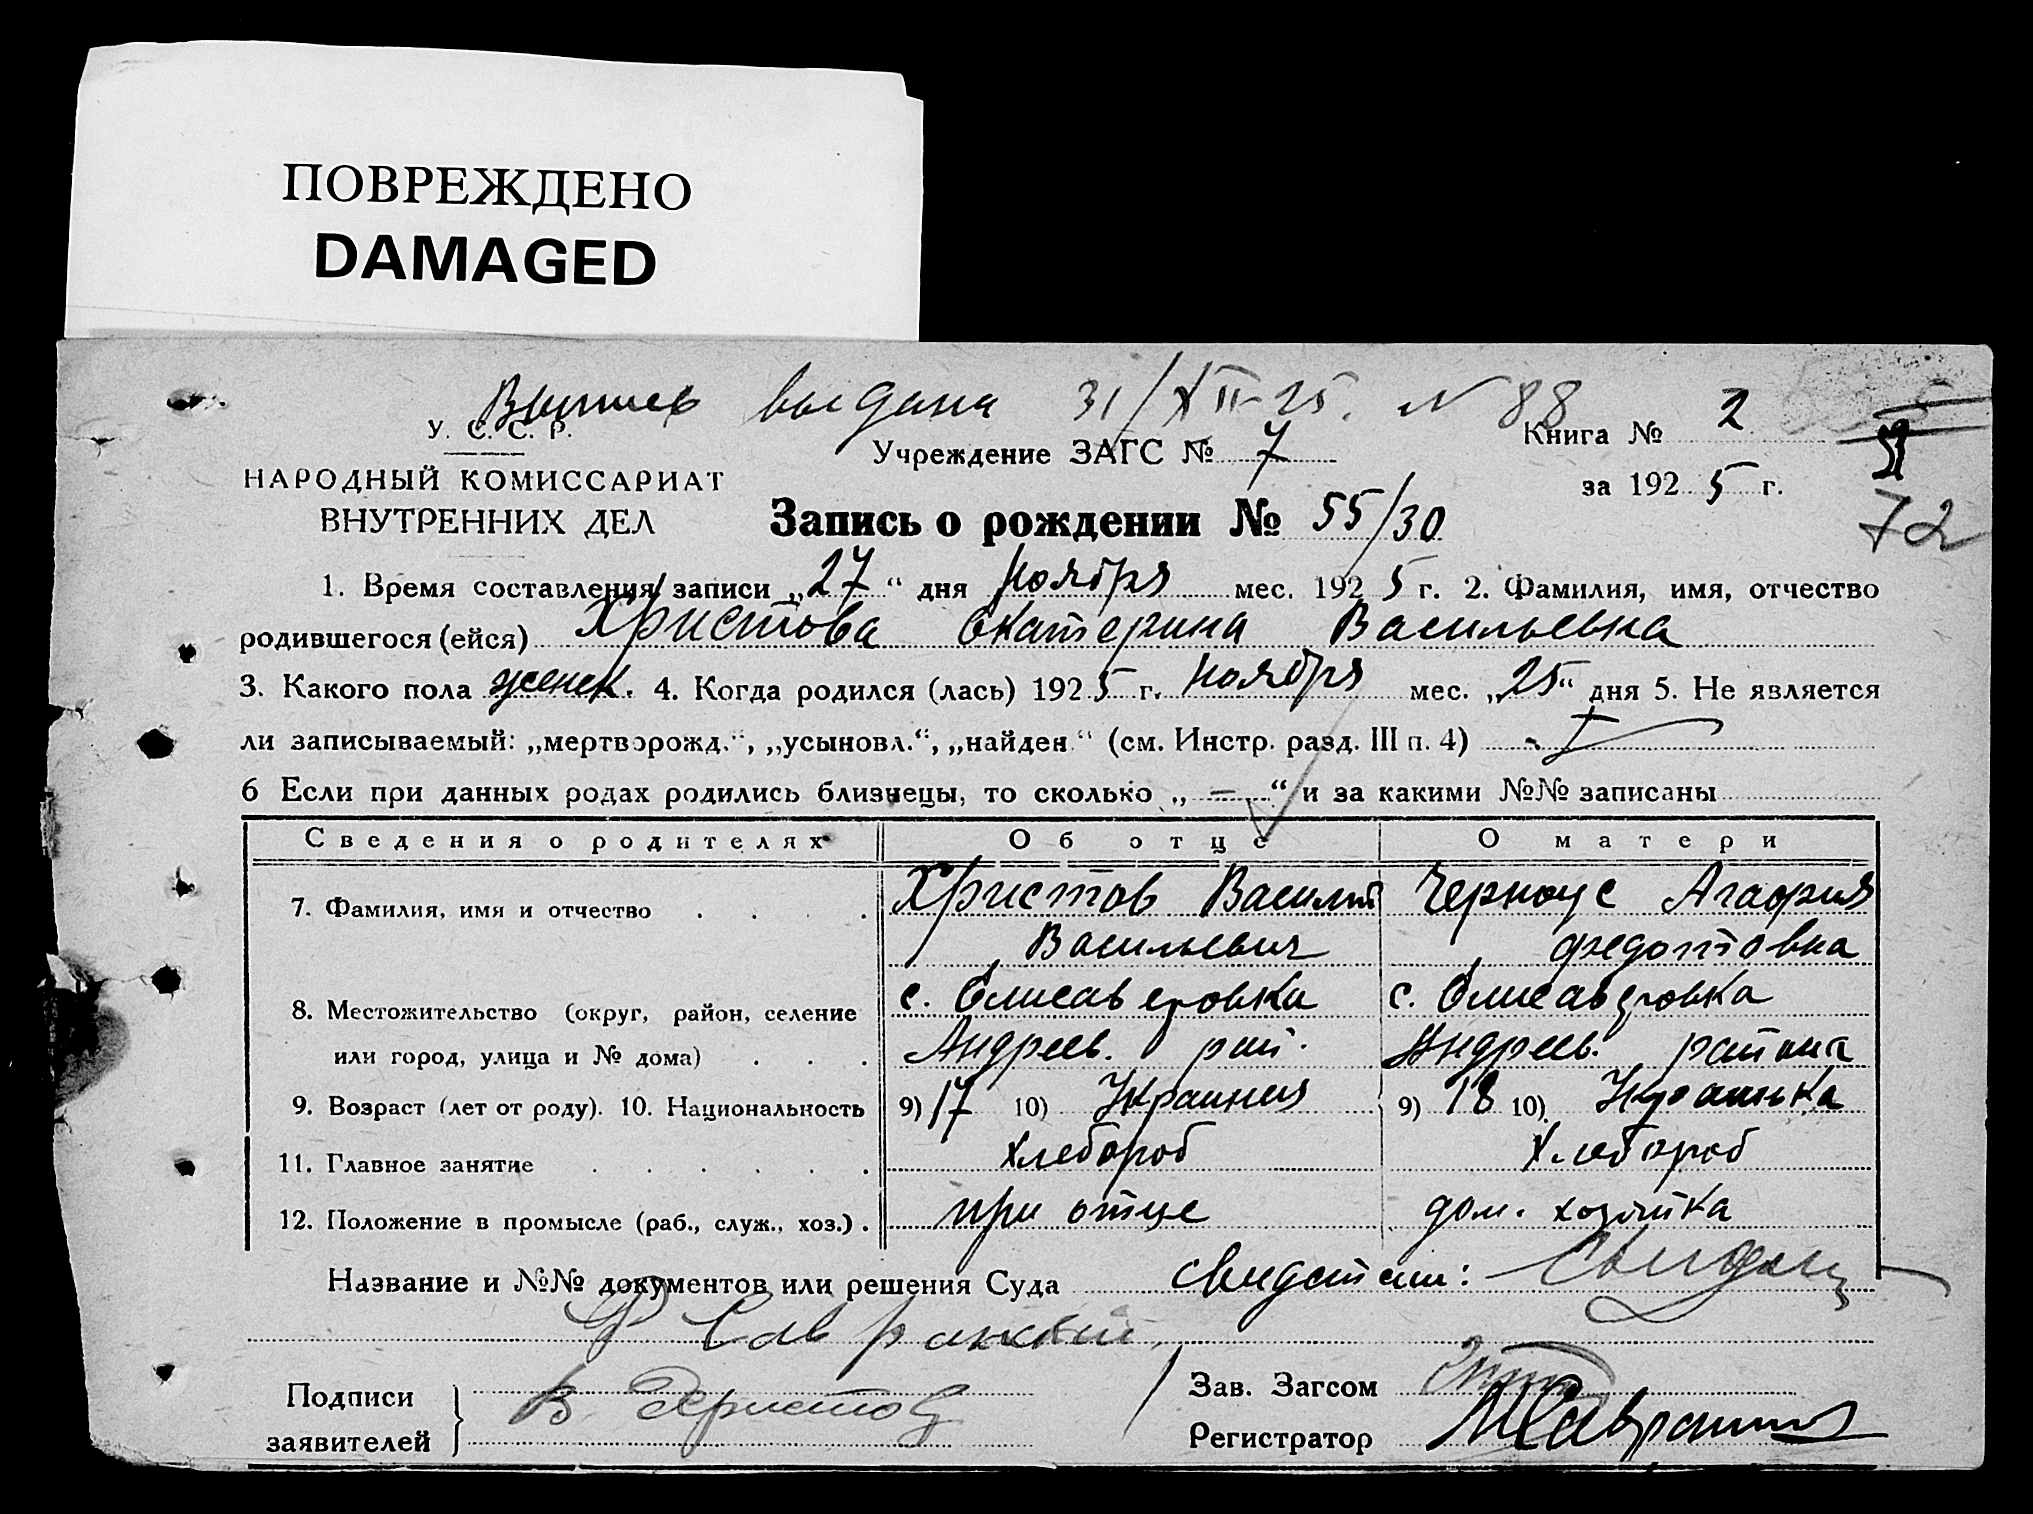 ПОВРЕЖДЕНО
DAMAGED
Выпись выдана 31/XII-25. N 88
У. С. С. Р.
НАРОДНЫЙ КОМИССАРИАТ
ВНУТРЕННИХ ДЕЛ
Учреждение ЗАГС № 7
Книга № 2
за 1925 г.
72
Запись о рождении № 55/30
1. Время составления записи „27“ дня Ноября мес. 1925 г. 2. Фамилия, имя, отчество
родившегося (ейся) Христова Екатерина Васильевна
3. Какого пола женск. 4. Когда родился (лась) 1925 г. Ноября мес. „25“ дня 5. Не является
ли записываемый: „мертворожд.“, „усыновл.“, „найден“ (см. Инстр. разд. III п. 4)
6 Если при данных родах родились близнецы, то сколько „ — “ и за какими №№ записаны
Сведения о родителях Об отце О матери
7. Фамилия, имя и отчество . . . . Христов Василий Черноус Агафия
Васильевич Федотовна
8. Местожительство (округ, район, селение с. Елисаветовка с. Елисаветовка
или город, улица и № дома) . . . Андреев. рай. Андреев. района
9. Возраст (лет от роду). 10. Национальность 9) 17 10) Украинец 9) 18 10) Украинка
11. Главное занятие . . . . . . хлебороб хлебороб
12. Положение в промысле (раб., служ., хоз.) . при отце дом. хозяйка
Название и №№ документов или решения Суда свидетели:
Савранский
Подписи
заявителей
В. Христов
Зав. Загсом
Регистратор